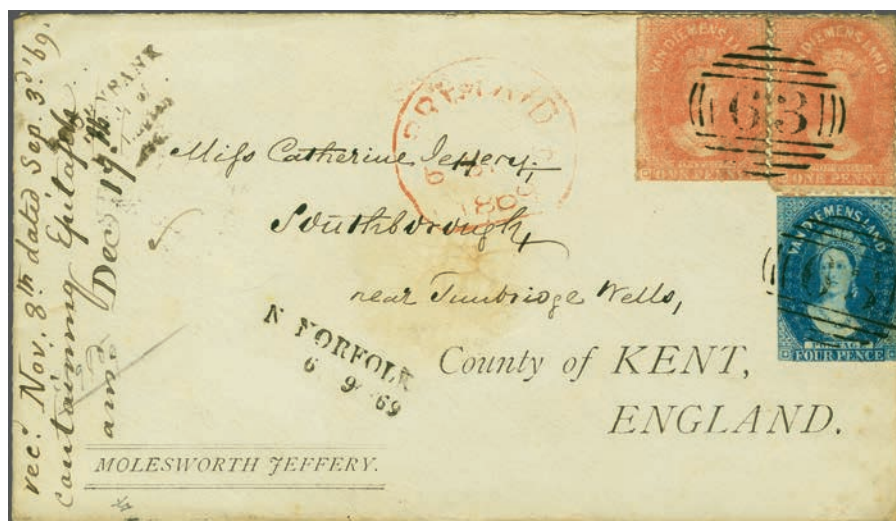 rec.d Nov. 8th dated Sep. 3.d '69.
containing Epitaphs
and Dec 17th
Miss Catherine Jeffery,
Southborough,
near Tunbridge Wells,
County of KENT,
ENGLAND.
MOLESWORTH JEFFERY.
N NORFOLK
6 9 69
VAN DIEMENS LAND
ONE PENNY
VAN DIEMENS LAND
ONE PENNY
63
VAN DIEMENS LAND
POSTAGE
FOUR PENCE